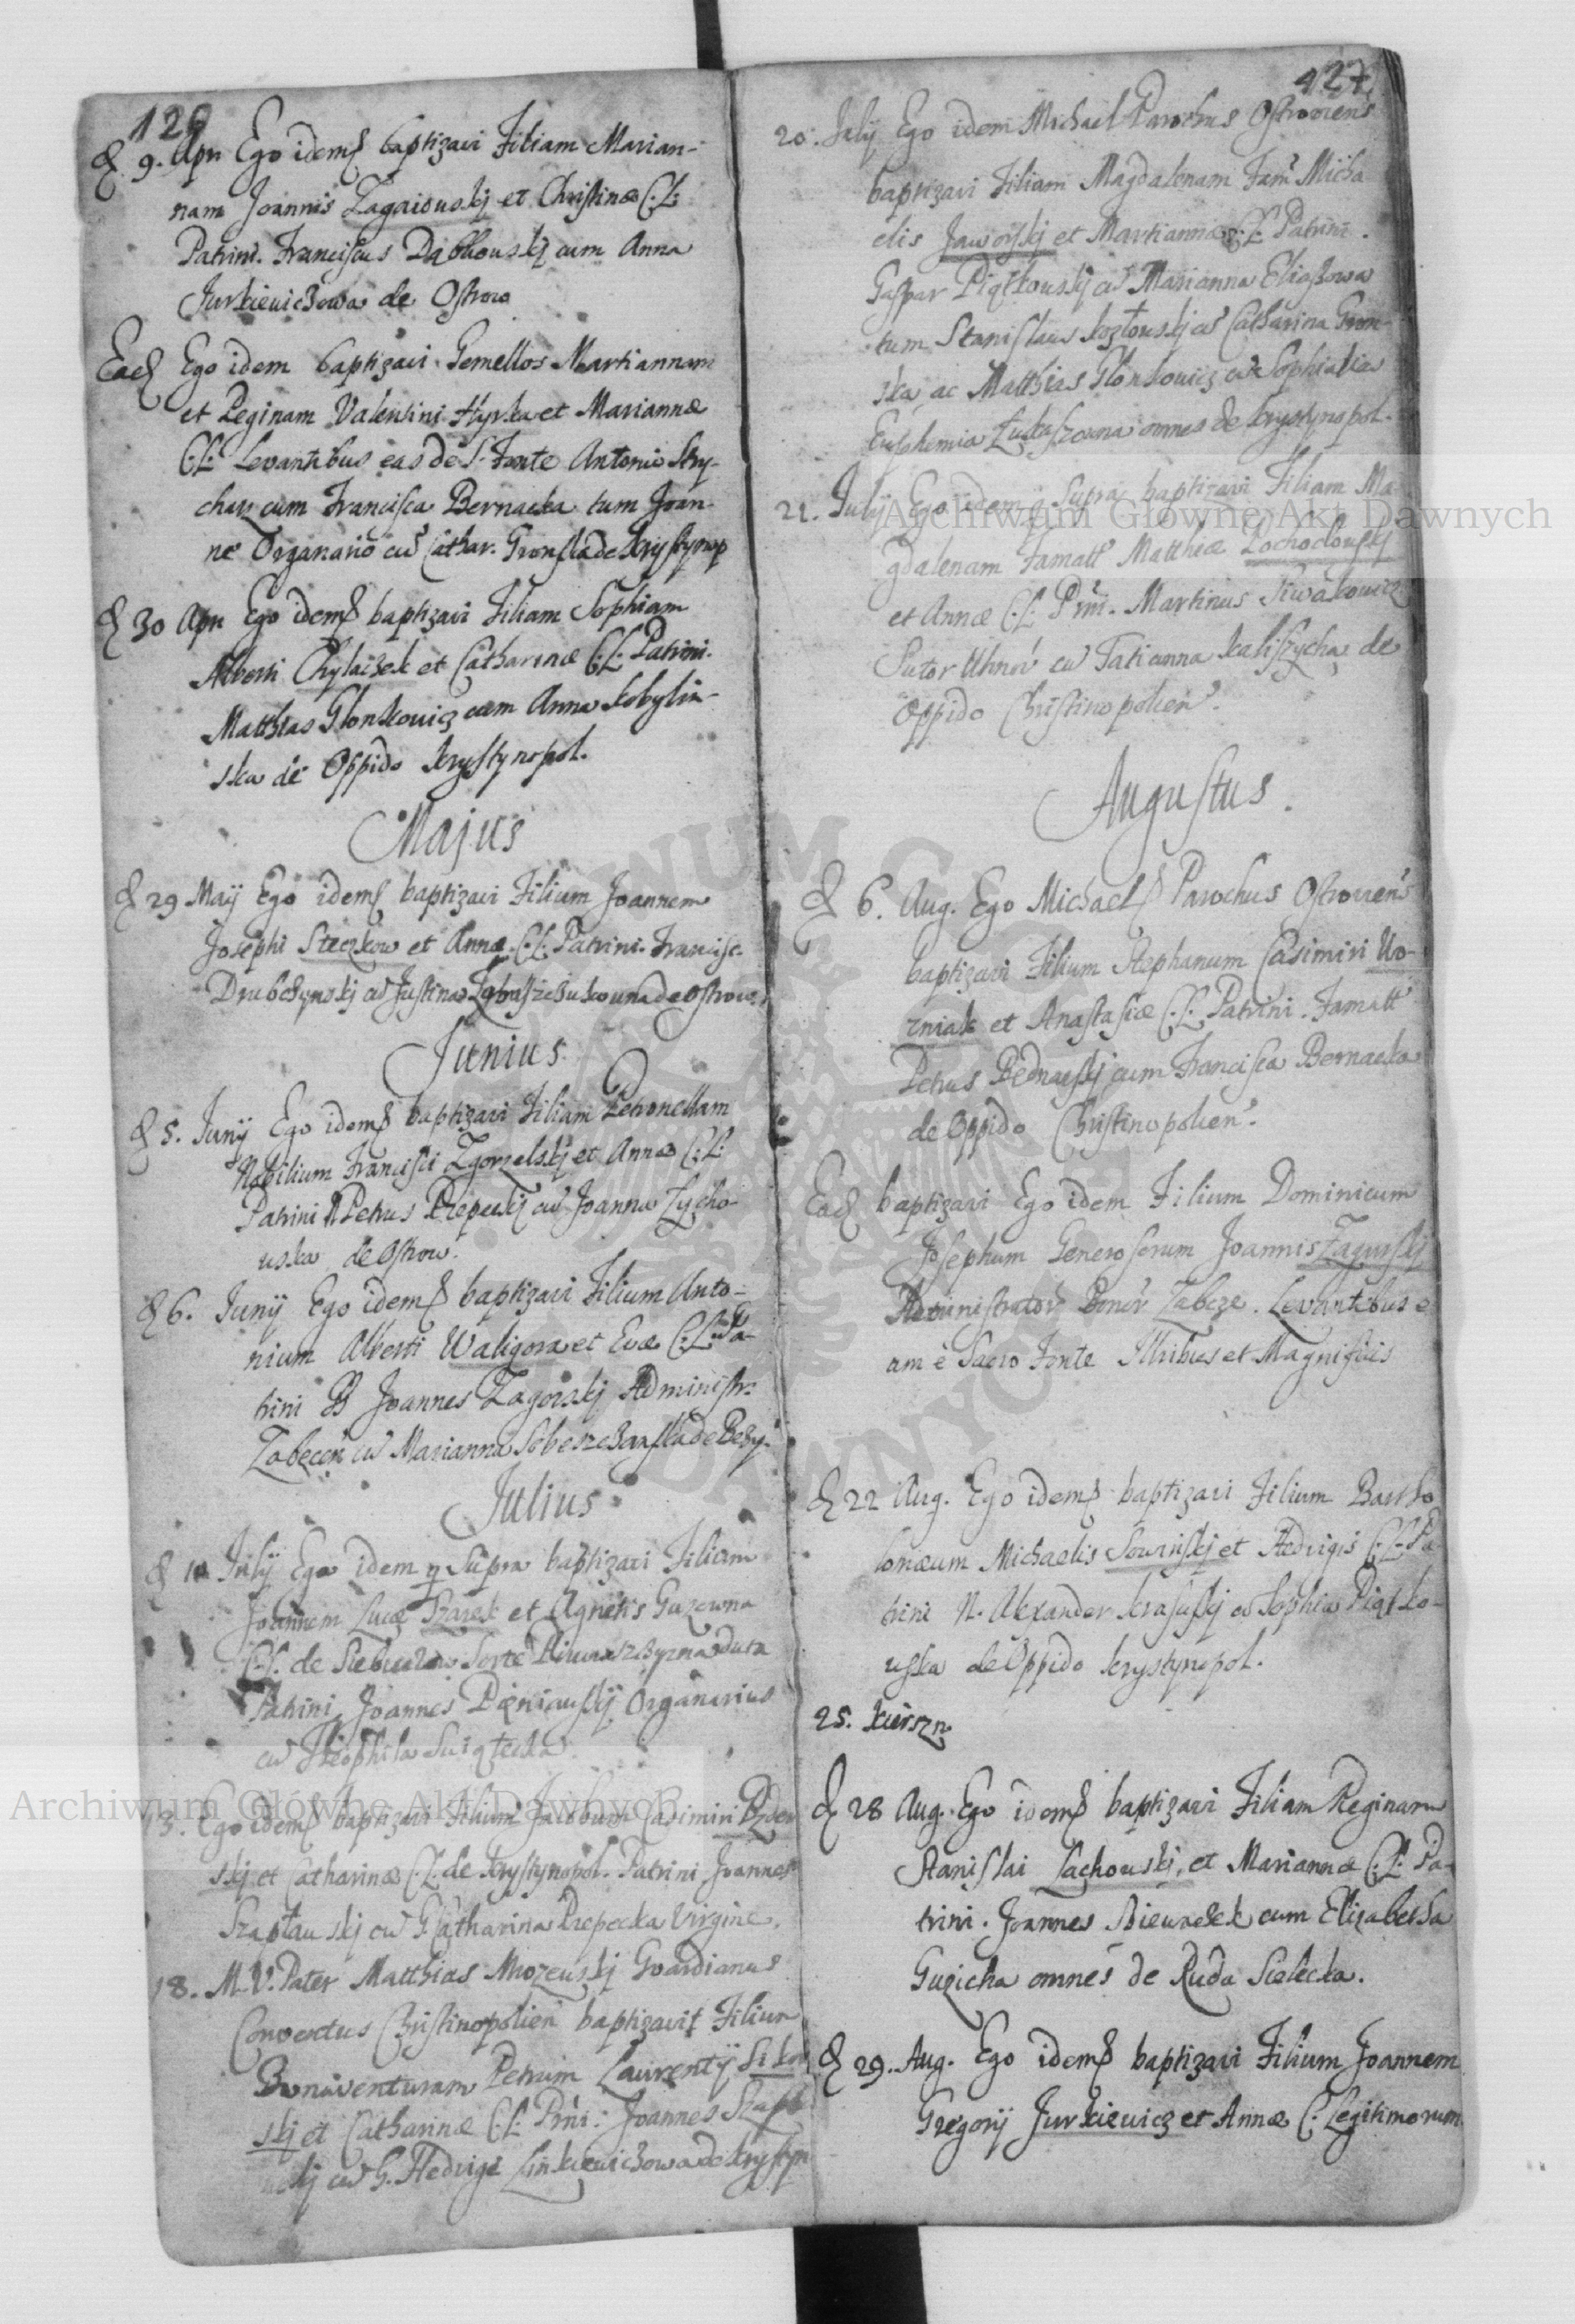 126
D. 9. Apr. Ego idem baptizavi Filiam Marian-
nam Joannis Zagaiouskj et Christinæ C.L.
Patrini. Franciscus Dąbkouskj cum Anna
Jurkieviczowa de Ostrow
Ead Ego idem baptizavi Gemellos Martiannam
et Reginam Valentini Hyrka et Mariannæ
C.L. Levantibus eas de S. Fonte Antonio Stry-
charz cum Francisca Bernacka tum Joan-
ne Organario cu Cathar. Gronska de Krystynop
D 30 Apr Ego idem baptizavi Filiam Sophiam
Alberti Chylaszek et Catharinæ C.L. Patrini.
Matthias Glonkowicz cum Anna Kobylin-
ska de Oppido Krystynopol.
Majus
D 29 Maij Ego idem baptizavi Filium Joannem
Josephi Steczkow et Annæ C.L. Patrini. Francisc.
Drubczynskj cu Justina de Ostrow.
Junius
D 5. Junij Ego idem baptizavi Filiam Petronellam
Nobilium Francisci Zgorzelskj et Annæ C.L.
Patrini N Petrus Przepeckj cu Joanna Zycho-
uska de Ostrow.
D 6. Junij Ego idem baptizavi Filium Anto-
nium Alberti Waligora et Evæ C.L. Pa-
trini Joannes Zagorskj Administr.
Zabecen cu Marianna Sobeszczanska de Bezy.
Julius
D Julij Ego idem q Supra baptizavi Filium
Joannem Lucæ Szarek et Agnetis Guzowna
C.L. de
Patrini Joannes Pieniauskj Organarius
cu Theophila Swiątecka
13. Ego idem baptizavi Filium Jacobum Casimiri
skj et Catharinæ C.L. de Krystynopol. Patrini Joannes
Szaptauskj cu G Catharina Przepecka Virgine.
18. M.V. Pater Matthias Mrozeuskj Guardianus
Conventus Christinopolien baptizavit Filium
Bonaventuram Petrum Laurentij
skj et Catharinæ C.L. Prni. Joannes Szapt
uskj cu G. Hedvigi Linkiewiczowa de Krystyn
127
20. Julij Ego idem Michael Parochus Ostrovien̄s
baptizavi Filiam Magdalenam Fam Micha
elis Jaworskj et Martiannæ C.L. Patrini.
Gaspar Piątkouskj cu Marianna Eliaszowa
tum Stanislaus Kozłouskj cu Catharina Gron-
ska, ac Matthias Glonkowicz cu Sophia
Euphemia Łukaszowna omnes de Krystynopol.
21. Julij Ego idem q Supra baptizavi Filiam Ma
gdalenam Famatt Matthiæ Zochoclouskj
et Annæ C.L. Prni. Martinus Siwakowicz
Sutor Uhnov cu Tatianna Kaliszycha de
Oppido Christinopolien.
Augustus.
D 6. Aug. Ego Michael Parochus Ostroviens
baptizavi Filium Stephanum Casimiri Wo-
zniak et Anastasiæ C.L. Patrini. Famatt
Petrus Bednarskj cum Francisca Bernacka
de Oppido Christinopolien.
Ead baptizavi Ego idem Filium Dominicum
Josephum Generosorum Joannis Zagurskj
Administrator Bonor Zabcze. Levantibus e
am è Sacro Fonte Illribus et Magnificis
D 22 Aug. Ego idem baptizavi Filium Bartho
lomæum Michaelis Sowinskj et Hedvigis C.L. Pa
trini N. Alexander Krasuskj cu Sophia Piątko-
uska de Oppido Krystynopol.
25. Kierszn
D 28 Aug. Ego idem baptizavi Filiam Reginam
Stanislai Lachouskj, et Mariannæ C.L. Pa-
trini. Joannes Biewaek cum Elizabetha
Guzicha omnes de Ruda Sielecka.
D 29. Aug. Ego idem baptizavi Filium Joannem
Gregorij Jurkiewicz et Annæ C. Legitimorum
Archiwum Główne Akt Dawnych
Archiwum Główne Akt Dawnych